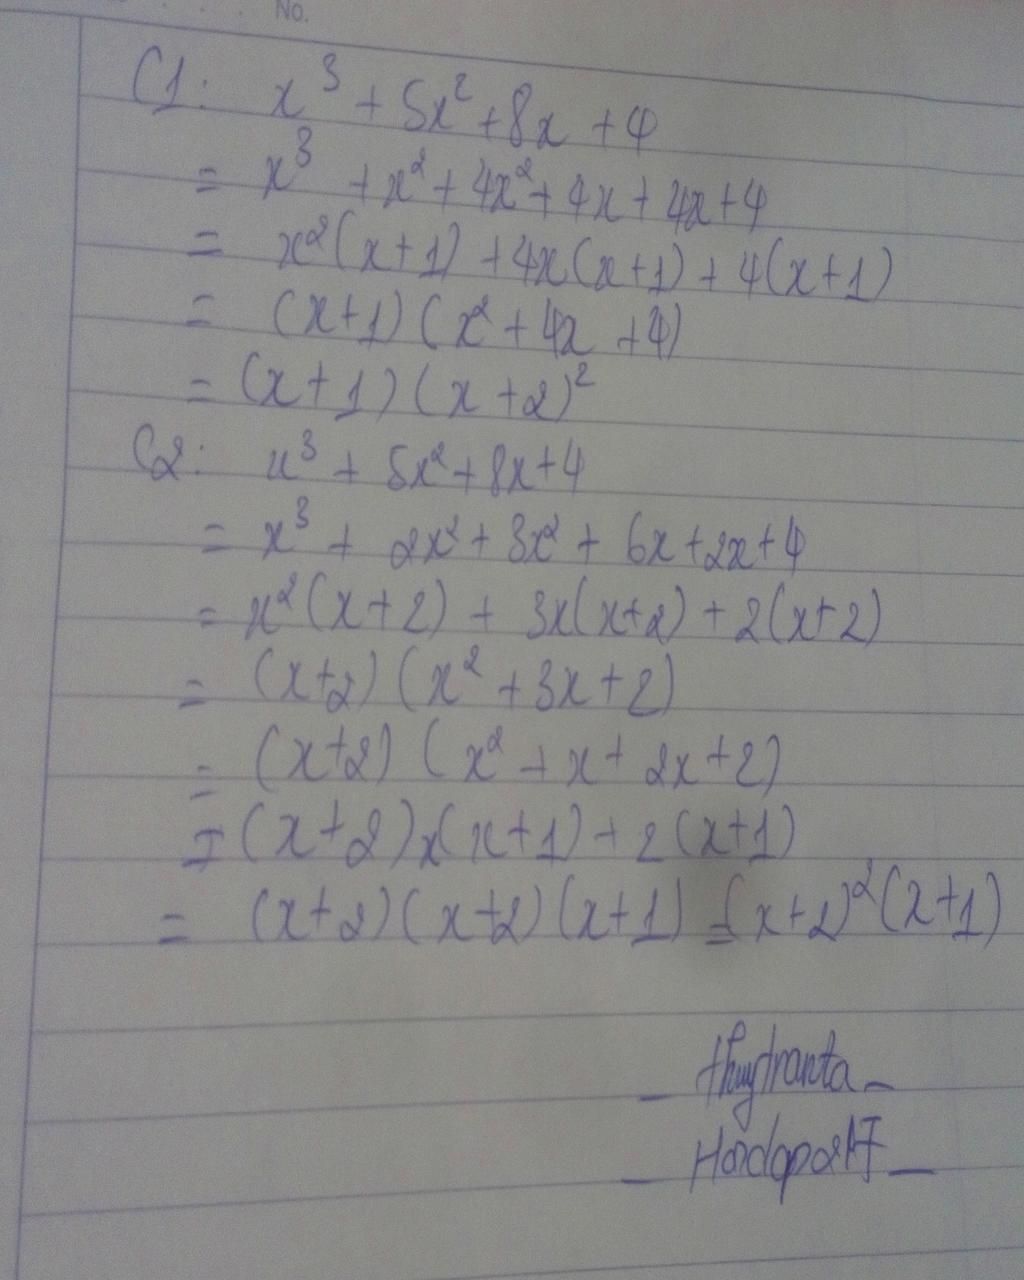 No.
C1: x³ + 5x² + 8x + 4
= x³ + x² + 4x² + 4x + 4x + 4
= x²(x+1) + 4x(x+1) + 4(x+1)
= (x+1)(x² + 4x + 4)
= (x+1)(x+2)²
C2: x³ + 5x² + 8x + 4
= x³ + 2x² + 3x² + 6x + 2x + 4
= x²(x+2) + 3x(x+2) + 2(x+2)
= (x+2)(x² + 3x + 2)
= (x+2)(x² + x + 2x + 2)
= (x+2)x(x+1) + 2(x+1)
= (x+2)(x+2)(x+1) = (x+2)²(x+1)
_ thuytranta _